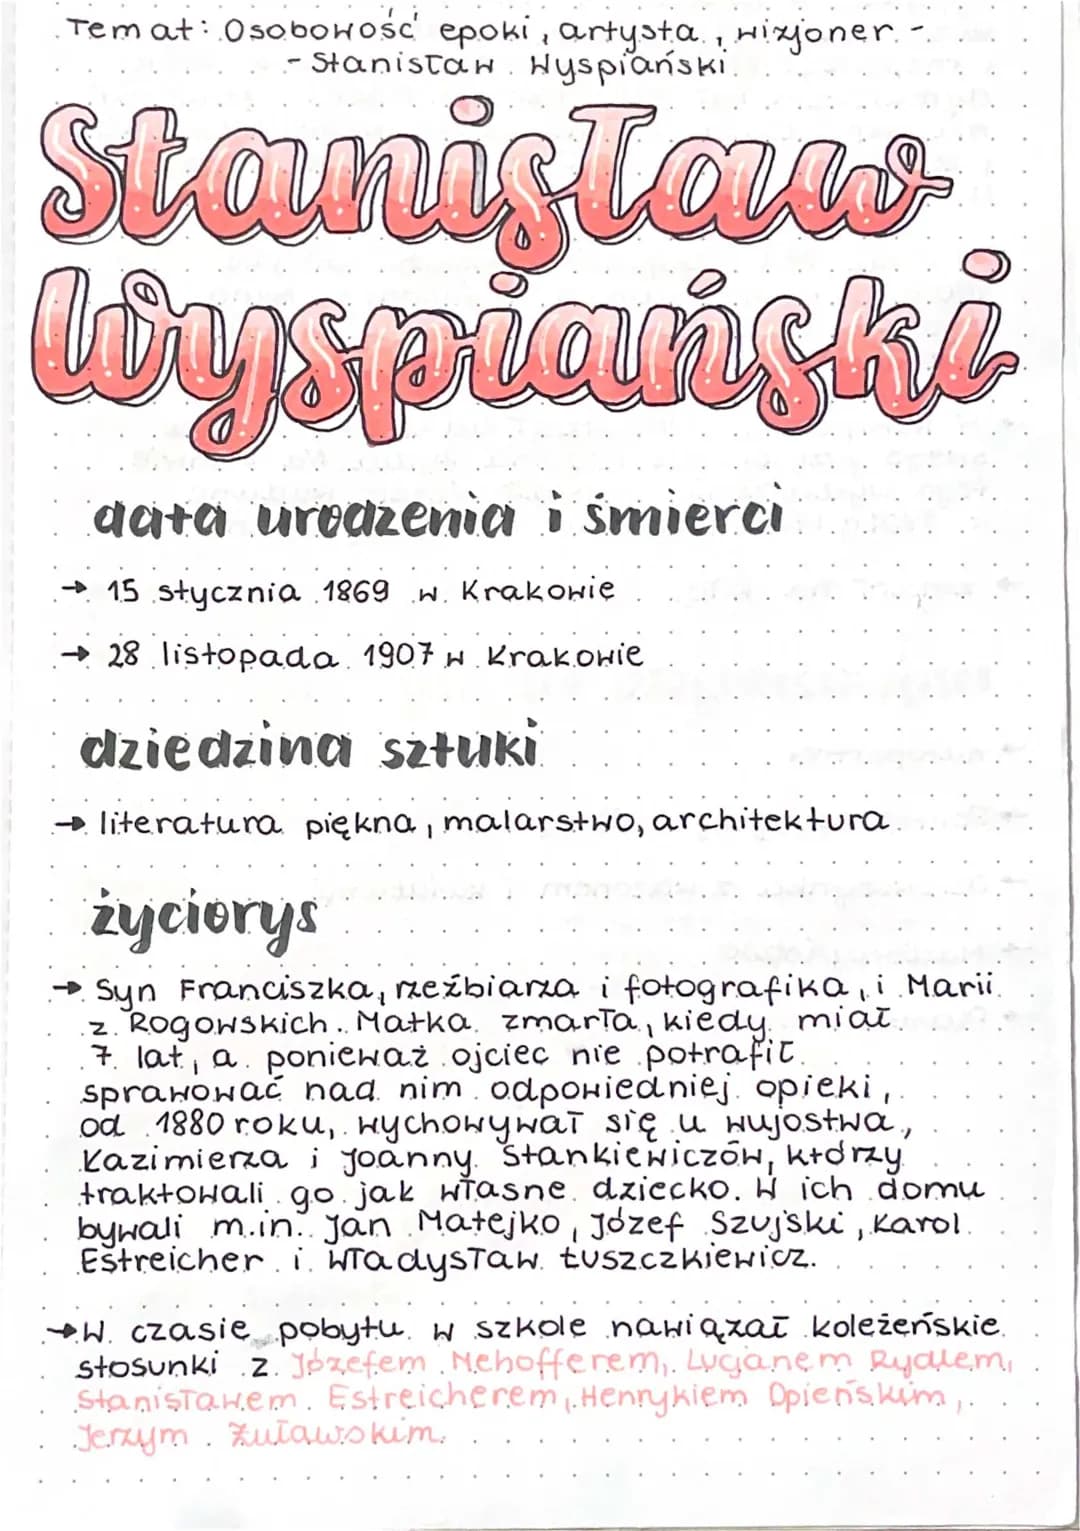 Temat: Osobowość epoki, artysta, wizjoner -
- Stanisław Wyspiański
Stanisław
Wyspiański
data urodzenia i śmierci
→ 15 stycznia 1869 w Krakowie
→ 28 listopada 1907 w Krakowie
dziedzina sztuki
→ literatura piękna, malarstwo, architektura
życiorys
→ Syn Franciszka, rzeźbiarza i fotografika, i Marii
z Rogowskich. Matka zmarła, kiedy miał
7 lat, a ponieważ ojciec nie potrafił
sprawować nad nim odpowiedniej opieki,
od 1880 roku, wychowywał się u wujostwa,
Kazimierza i Joanny Stankiewiczów, którzy
traktowali go jak własne dziecko. W ich domu
bywali m.in. Jan Matejko, Józef Szujski, Karol
Estreicher i Władysław Łuszczkiewicz.
→ W czasie pobytu w szkole nawiązał koleżeńskie
stosunki z Józefem Mehofferem, Lucjanem Rydlem,
Stanisławem Estreicherem, Henrykiem Opieńskim,
Jerzym Żuławskim.